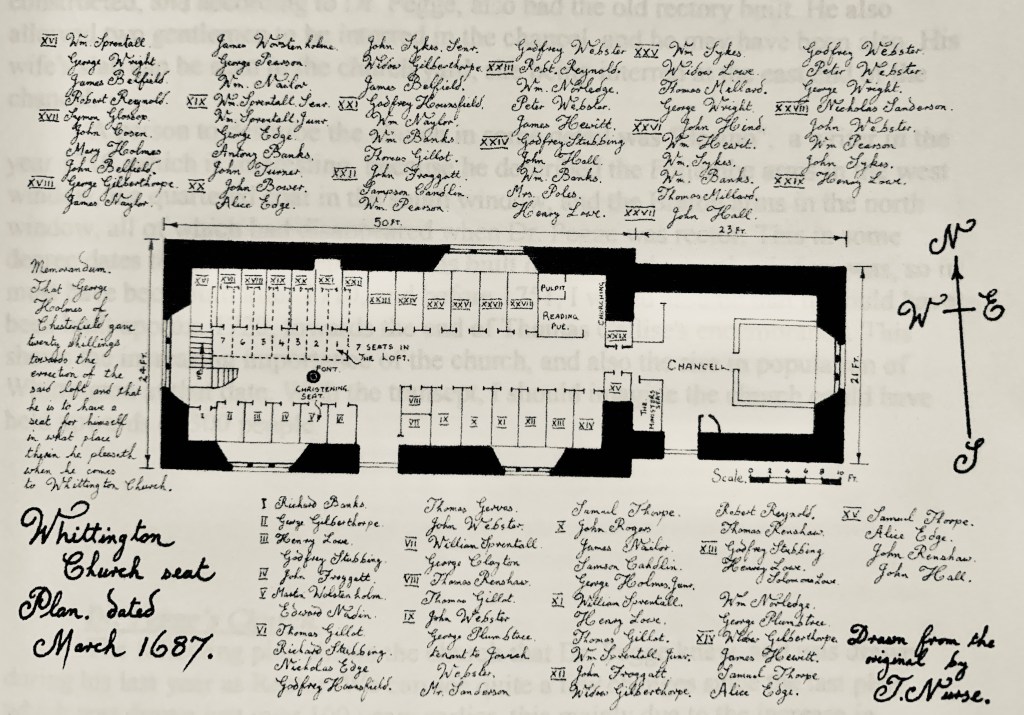 XVI Wm. Sprentall.
George Wright.
James Belfield.
Robert Reynold.
XVII Symon Glossop.
John Cosen.
Mary Holmes
John Belfield.
XVIII George Gilberthorpe.
James Naylor.
James Worstenholme.
George Pearson.
Wm. Nailor
XIX Wm. Sprentall, Senr.
Wm. Sprentall, Junr.
George Edge.
Antony Banks.
John Turner.
XX John Bower.
Alice Edge.
John Sykes, Senr.
Widow Gilberthorpe.
James Belfield.
XXI Godfrey Hounsfield.
Wm. Naylor.
Wm Banks
Thomas Gillot.
XXII John Froggatt.
Sampson Candlin.
Wm Pearson
Godfrey Webster
XXIII Robt. Reynold.
Wm. Norledge.
Peter Webster.
James Hewitt.
XXIV Godfrey Stubbing
John Hall.
Wm. Banks.
Mrs. Poles.
Henry Lowe.
XXV Wm. Sykes
Widow Lowe.
Thomas Millard.
George Wright
XXVI John Hind.
Wm Hewit.
Wm. Sykes.
Wm. Banks.
Thomas Millard.
XXVII John Hall.
Godfrey Webster.
Peter Webster.
George Wright.
XXVIII Nicholas Sanderson.
John Webster.
Wm Pearson
John Sykes.
XXIX Henry Lowe.
50 FT.
23 FT.
N
W E
S
Memorandum.
That George
Holmes of
Chesterfield gave
twenty shillings
towards the
erection of the
said loft and that
he is to have a
seat for himself
in what place
therein he pleaseth
when he comes
to Whittington Church.
24 FT.
XVI XVII XVIII XIX XX XXI XXII XXIII XXIV XXV XXVI XXVII XXVIII
PULPIT
READING
PUE.
7 6 5 4 3 2 1
7 SEATS IN
THE LOFT.
FONT
CHRISTENING
SEAT
XXIX
XV
THE
MINISTERS
SEAT
CHANCELL
21 FT.
I II III IV V VI
VII VIII IX X XI XII XIII XIV
Scale. 0 2 4 6 8 10 FT.
Whittington
Church seat
Plan. dated
March 1687.
I Richard Banks.
II George Gilberthorpe.
III Henry Lowe.
Godfrey Stubbing.
IV John Froggatt.
V Martin Wolstenholm.
Edward Nadin.
VI Thomas Gillot
Richard Stubbing
Nicholas Edge
Godfrey Hounsfield.
Thomas Gerves.
John Webster.
VII William Sprentall.
George Clayton
VIII Thomas Renshaw.
Thomas Gillot.
IX John Webster
George Plumbtree
tenant to Josiah
Webster.
Mr. Sanderson
Samuel Thorpe.
X John Rogers
James Nailor.
Samson Candlin.
George Holmes, Junr.
XI William Sprentall.
Henry Lowe.
Thomas Gillot.
Wm Sprentall, Junr.
XII John Froggatt.
Widow Gilberthorpe.
Robert Reynold.
Thomas Renshaw.
XIII Godfrey Stubbing
Henry Lowe.
Solomon Lowe
Wm Norledge.
George Plumbtree
XIV Widow Gilberthorpe.
James Hewitt.
Samuel Thorpe
Alice Edge.
XV Samuel Thorpe.
Alice Edge.
John Renshaw.
John Hall.
Drawn from the
original by
T. Nurse.